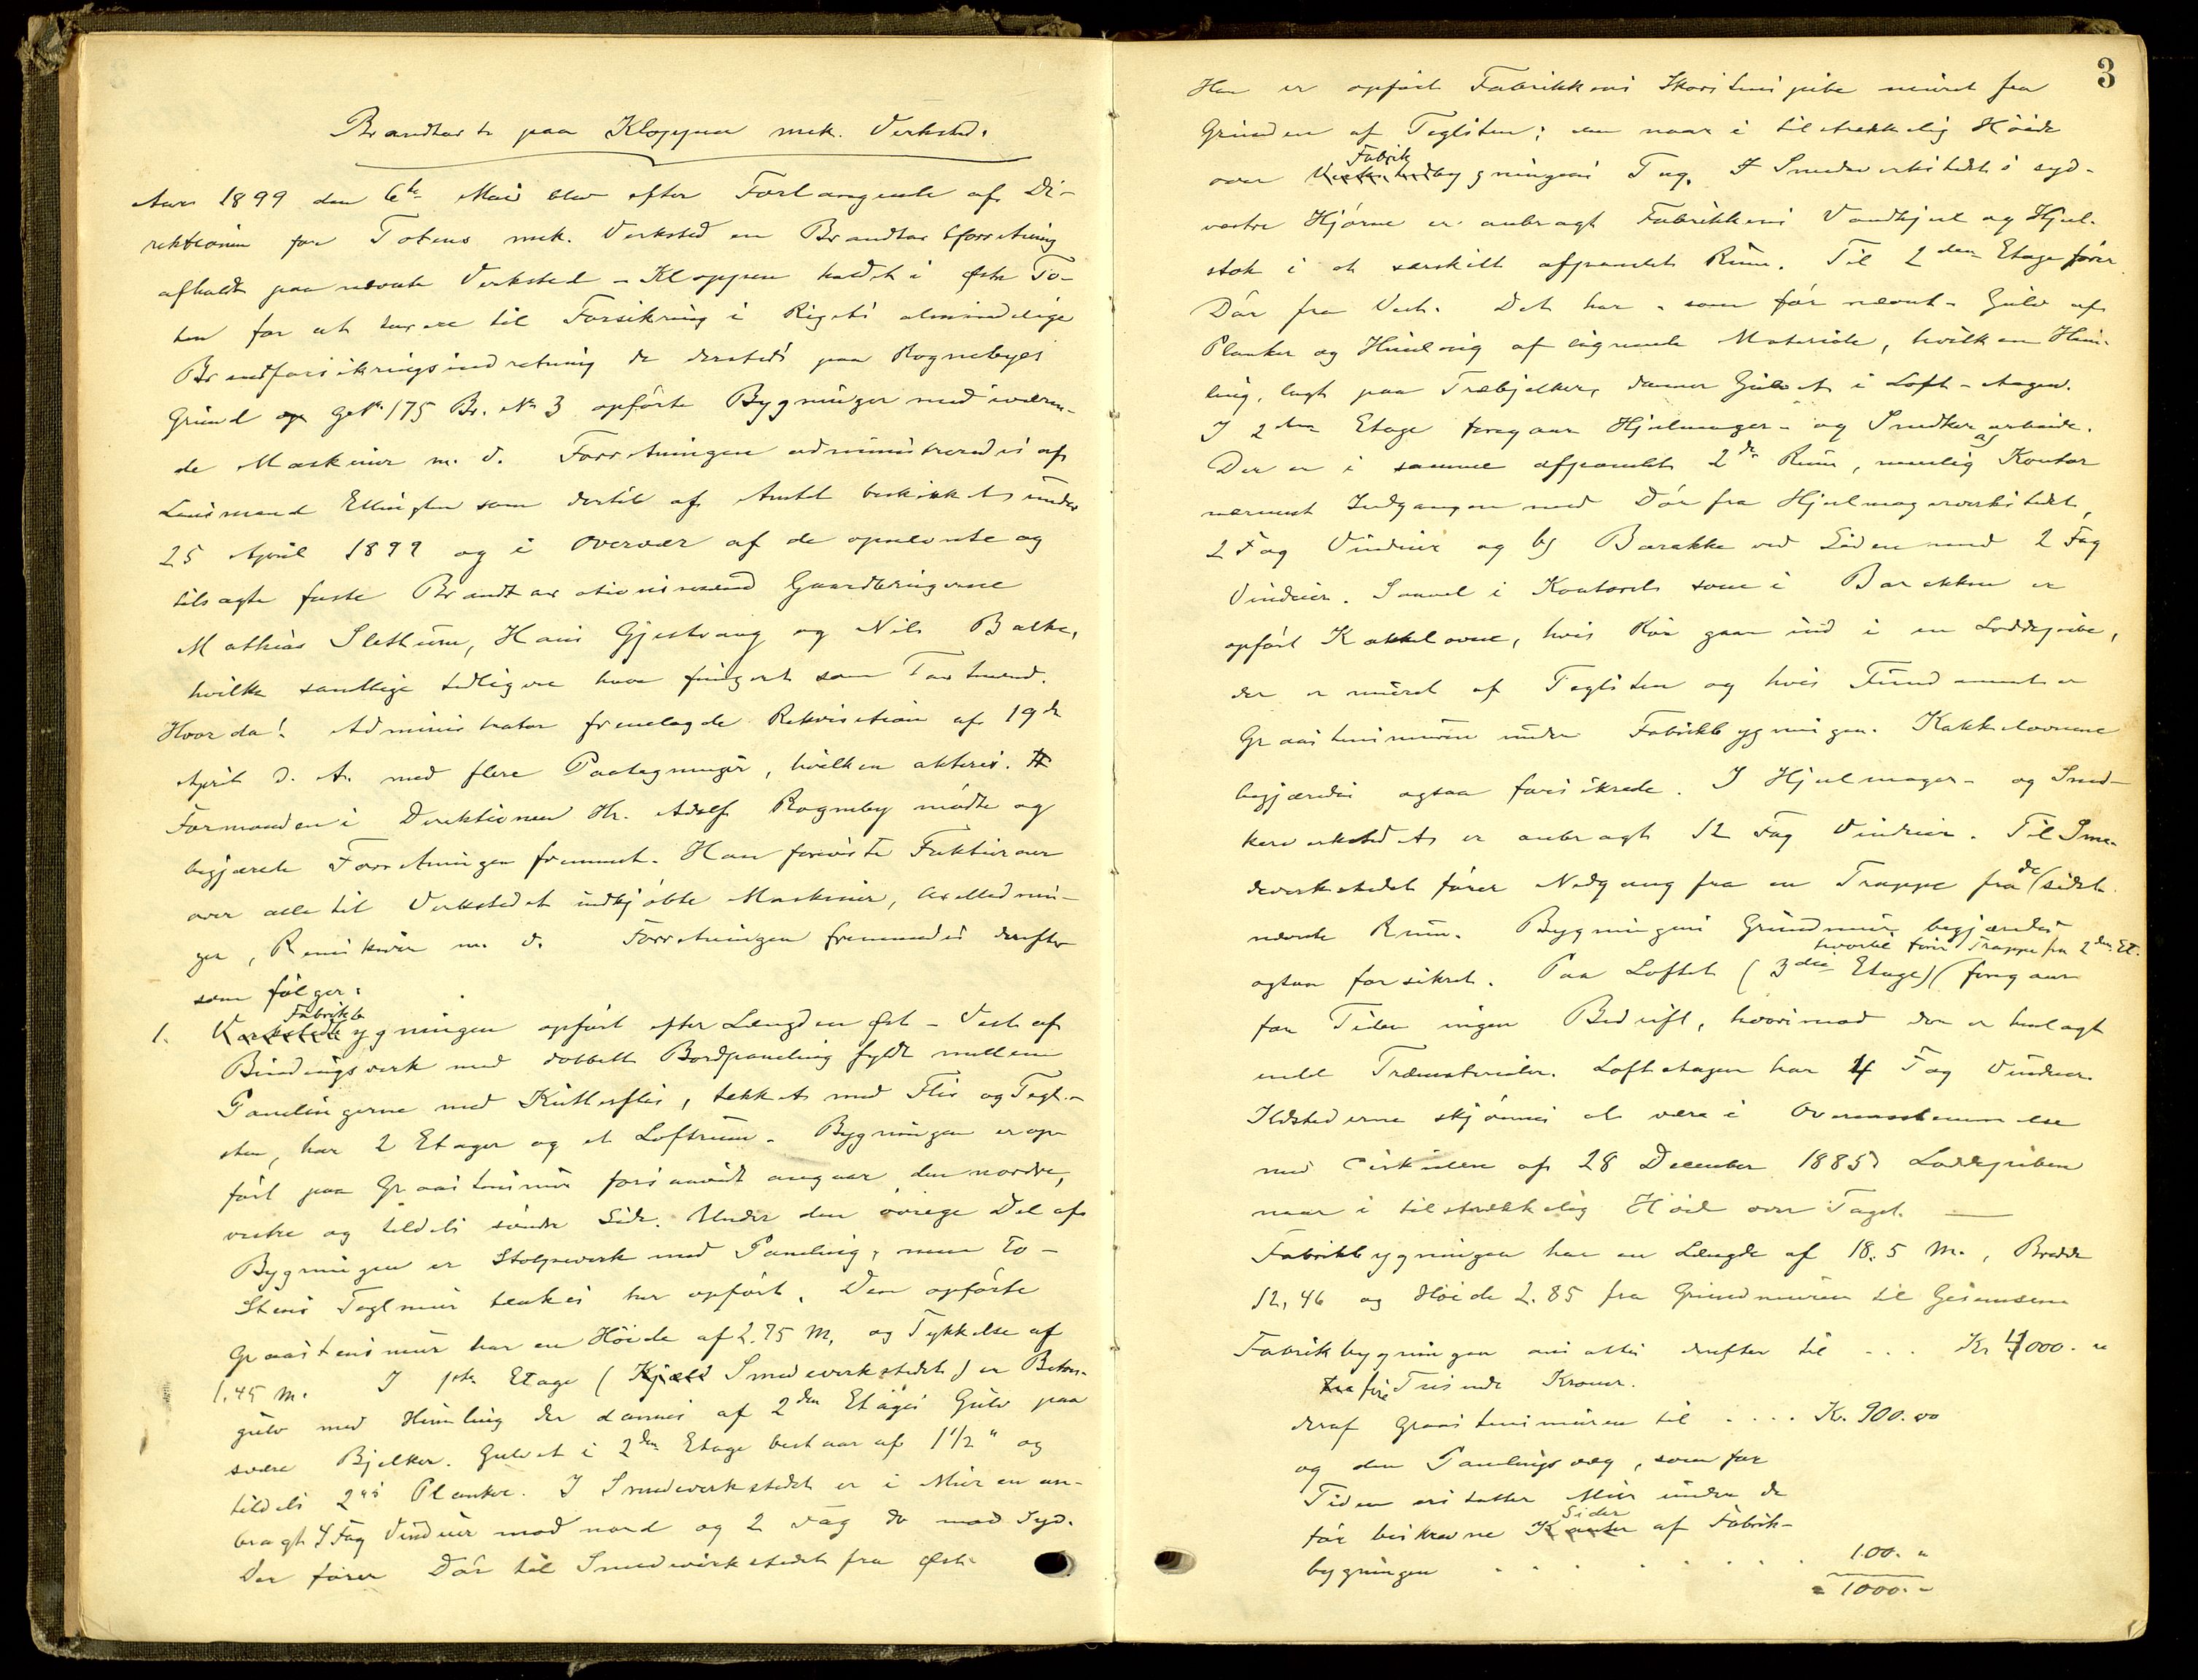 Brandtaxt paa Kloppen mek. Verksted.
Aar 1899 den 6te Mai blev efter Forlangende af Di-
rektionen for Totens mek. Verksted en Brandtaxtforretning
afholdt paa nævnte Verksted - Kloppen kaldet i Østre To-
ten for at taxere til Forsikring i Rigets almindelige
Brandforsikringsindretning de dersteds paa Rognebyes
Grund og G.No 175 Br. No 3 opførte Bygninger med iværen-
de Maskiner m. v. Forretningen administreredes af
Lensmand Ellingsen som dertil af Amtet beskikket under
25 April 1899 og i Overvær af de opnævnte og
tilsagte faste Brandtaxationsmænd Gaardbrugerne
Mathias Slethune, Hans Gjestvang og Nils Balke,
hvilke samtlige tidligere have fungeret som Taxtmænd.
Hvorda! Administrator fremlagde Rekvisition af 19de
April d. A. med flere Paategninger, hvilken akteres.
Formanden i Direktionen Hr. Adolf Rogneby mødte og
begjærede Forretningen fremmet. Han foreviste Fakturaer
over alle til Verkstedet indkjøbte Maskiner, Axellednin-
ger, Remskiver m. v. Forretningen fremmedes derefter
som følger:
Fabrikb
1. Verkstedbygningen opført efter Længden Øst - Vest af
Bindingsverk med dobbelt Bordpaneling fyldt mellem
Panelingerne med Kutterflis, tækket med Flis og Tegl-
sten, har 2 Etager og et Loftrum. Bygningen er op-
ført paa Graastensmur forsaavidt angaar den nordre,
vestre og tildels søndre Side. Under den øvrige Del af
Bygningen er Stolpeverk med Paneling, men To-
Stens Teglmur tænkes her opført. Den opførte
Graastensmur har en Høide af 2.75 M. og Tykkelse af
1.45 M. I 1ste Etage (Kjæld Smedeverkstedet) er Beton-
gulv med Himling der dannes af 2den Etages Gulv paa
svære Bjelker. Gulvet i 2den Etage bestaar af 1 1/2 " og
tildels 2"s Planker. I Smedeverkstedet er i Muren an-
bragt 4 Fag Vinduer mod nord og 2 Fag do mod Syd.
Der fører Dør til Smedeverkstedet fra Øst.
3
Her er opført Fabrikkens Skorstenspibe muret fra
Grunden af Teglsten; den naar i tilstrækkelig Høide
Fabrik
over Verkstedbygningens Tag. I Smedeverkstedets syd-
vestre Hjørne er anbragt Fabrikkens Vandhjul og Hjul-
stok i et særskilt afpanelet Rum. Til 2den Etage fører
Dør fra Vest. Det har - som før nævnt - Gulv af
Planker og Himling af lignende Materiale, hvilken Him-
ling, lagt paa Træbjelker, danner Gulvet i Loft-etagen.
I 2den Etage foregaar Hjulmager- og Snedkerarbeide.
Der er i samme afpanelet 2de Rum, nemlig a) Kontor
nærmest Indgangen med Dør fra Hjulmagerverkstedet,
2 Fag Vinduer og b) Barakke ved Siden med 2 Fag
Vinduer. Saavel i Kontoret som i Barakken er
opført Kakkelovne, hvis Rør gaar ind i en Loddepibe,
der er muret af Teglsten og hvis Fundament er
Graastensmuren under Fabrikbygningen. Kakkelovnene
begjæredes ogsaa forsikrede. I Hjulmager- og Sned-
kerverkstedet er anbragt 12 Fag Vinduer. Til Sme-
deverkstedet fører Nedgang fra en Trappe fra de sidst-
nævnte Rum. Bygningens Grundmur begjæredes
hvortil fører Trappe fra 2den Et.
ogsaa forsikret. Paa Loftet (3die Etage) foregaar
for Tiden ingen Bedrift, hvorimod der er henlagt
endel Træmaterialer. Loftetagen har 4 Fag Vinduer.
Ildstederne skjønnes at være i Overensstemmelse
med Cirkulære af 28 December 1885. Loddepiben
naar i tilstrækkelig Høide over Taget.
Fabrikbygningen har en Længde af 18.5 M., Bredde
12,46 og Høide 2.85 fra Grundmuren til Gesimsen.
Fabrikbygningen ansattes derefter til ... Kr 4000. "
fire Tusinde Kroner.
deraf Graastensmuren til .... Kr. 900.00
og den Panelingsvæg, som for
Tiden erstatter Mur under de
Sider
før beskrevne Kanter af Fabrik-
bygningen . . . . . . 100. "
= 1000. -